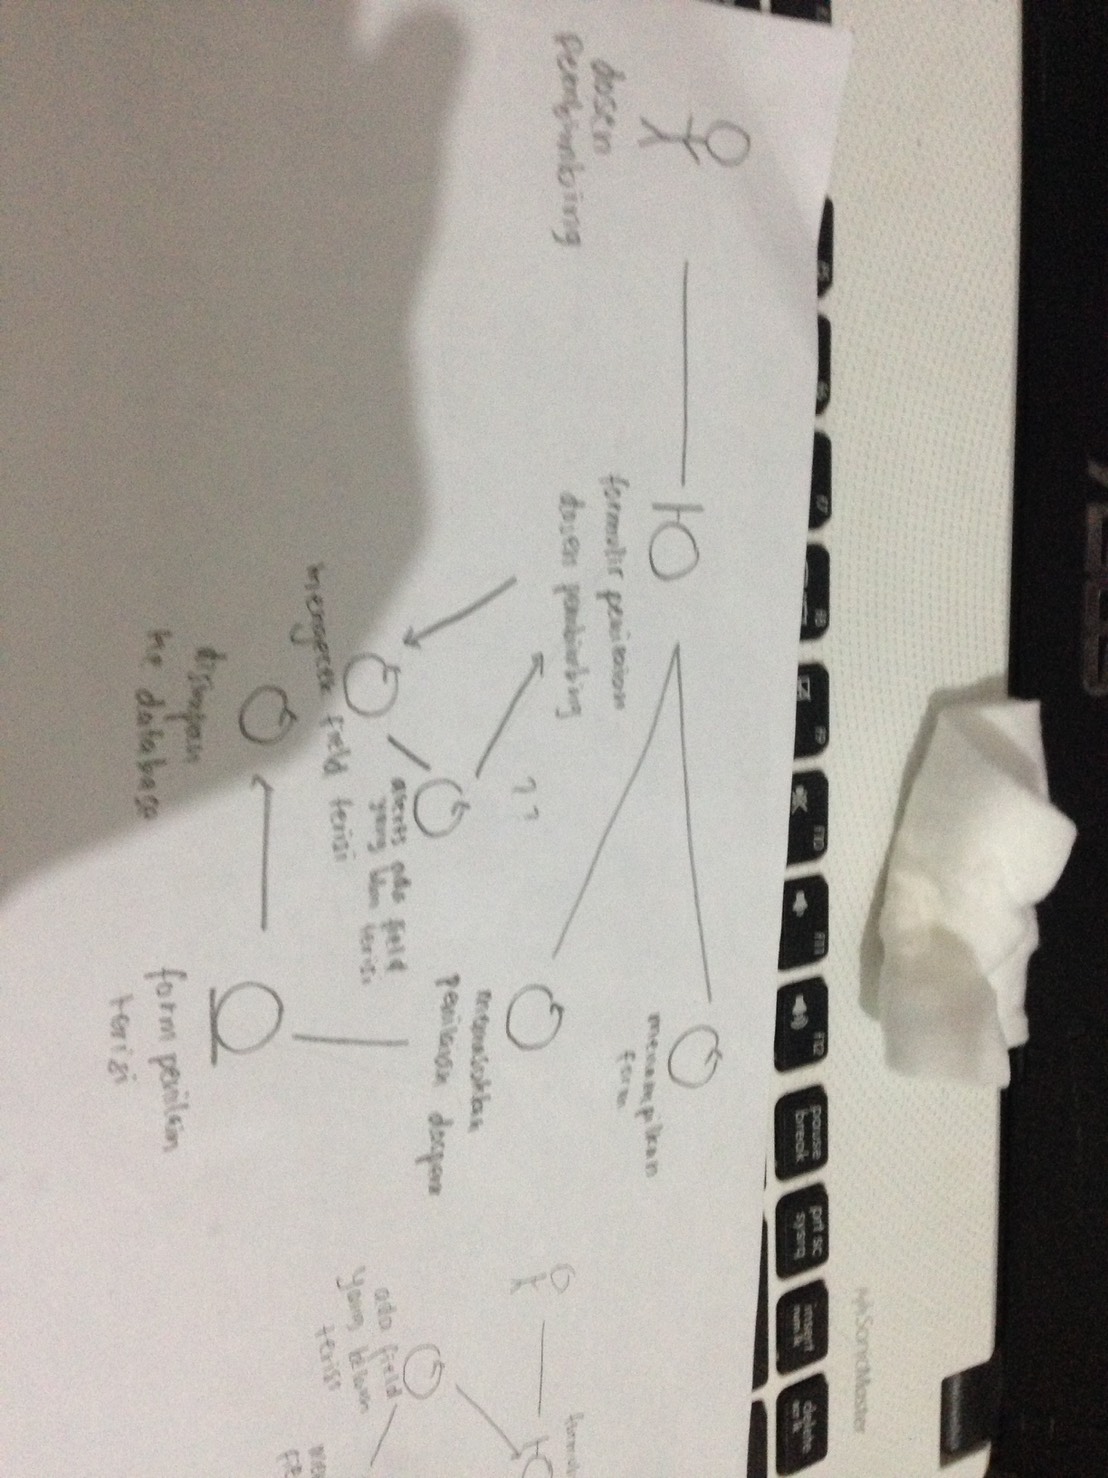 ASUS
SonicMaster
F5 F6 F7 F8 F9 F10 F11 F12
pause
break
prt sc
sysrq
insert
num lk
delete
scr lk
dosen
pembimbing
formulir penilaian
dosen pembimbing
menampilkan
form
??
memasukkan
penilaian dospem
alerts ada field
yang blm terisi
mengecek field terisi
disimpan
ke database
form penilain
terisi
formul
ada field
yang belum
terisi